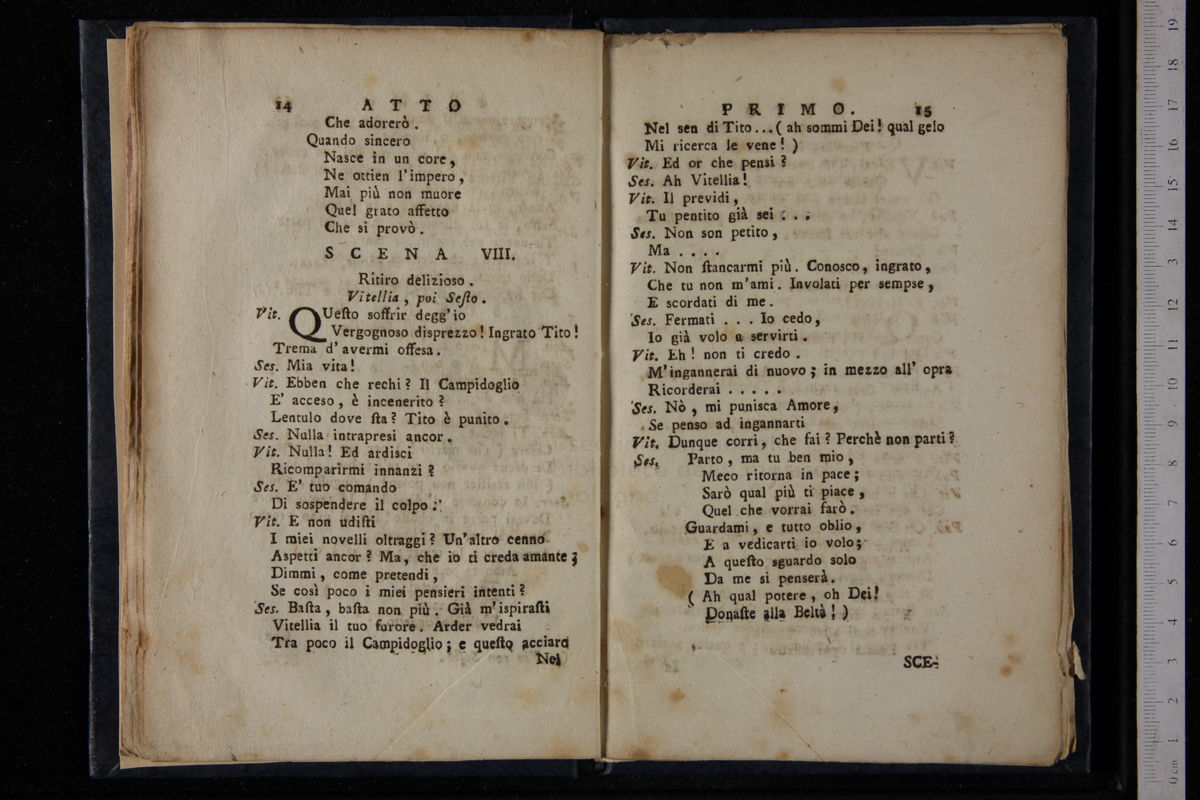 14 ATTO
Che adorerò.
Quando sincero
Nasce in un core,
Ne ottien l'impero,
Mai più non muore
Quel grato affetto
Che si provò.
SCENA VIII.
Ritiro delizioso.
Vitellia, poi Seſto.
Vit. QUeſto soffrir degg'io
Vergognoso disprezzo! Ingrato Tito!
Trema d'avermi offesa.
Ses. Mia vita!
Vit. Ebben che rechi? Il Campidoglio
E' acceso, è incenerito?
Lentulo dove ſta? Tito è punito.
Ses. Nulla intrapresi ancor.
Vit. Nulla! Ed ardisci
Ricomparirmi innanzi?
Ses. E' tuo comando
Di sospendere il colpo.
Vit. E non udiſti
I miei novelli oltraggi? Un'altro cenno
Aspetti ancor? Ma, che io ti creda amante;
Dimmi, come pretendi,
Se così poco i miei pensieri intenti?
Ses. Baſta, baſta non più. Già m'ispiraſti
Vitellia il tuo furore. Arder vedrai
Tra poco il Campidoglio; e queſto acciaro
Nel
PRIMO. 15
Nel sen di Tito...(ah sommi Dei! qual gelo
Mi ricerca le vene!)
Vit. Ed or che pensi?
Ses. Ah Vitellia!
Vit. Il previdi,
Tu pentito già sei...
Ses. Non son petito,
Ma....
Vit. Non ſtancarmi più. Conosco, ingrato,
Che tu non m'ami. Involati per sempse,
E scordati di me.
Ses. Fermati... Io cedo,
Io già volo a servirti.
Vit. Eh! non ti credo.
M'ingannerai di nuovo; in mezzo all' opra
Ricorderai.....
Ses. Nò, mi punisca Amore,
Se penso ad ingannarti
Vit. Dunque corri, che fai? Perchè non parti?
Ses. Parto, ma tu ben mio,
Meco ritorna in pace;
Sarò qual più ti piace,
Quel che vorrai farò.
Guardami, e tutto oblio,
E a vedicarti io volo;
A queſto sguardo solo
Da me si penserà.
(Ah qual potere, oh Dei!
Donaſte alla Beltà!)
SCE-
0 cm 1 2 3 4 5 6 7 8 9 10 11 12 13 14 15 16 17 18 19